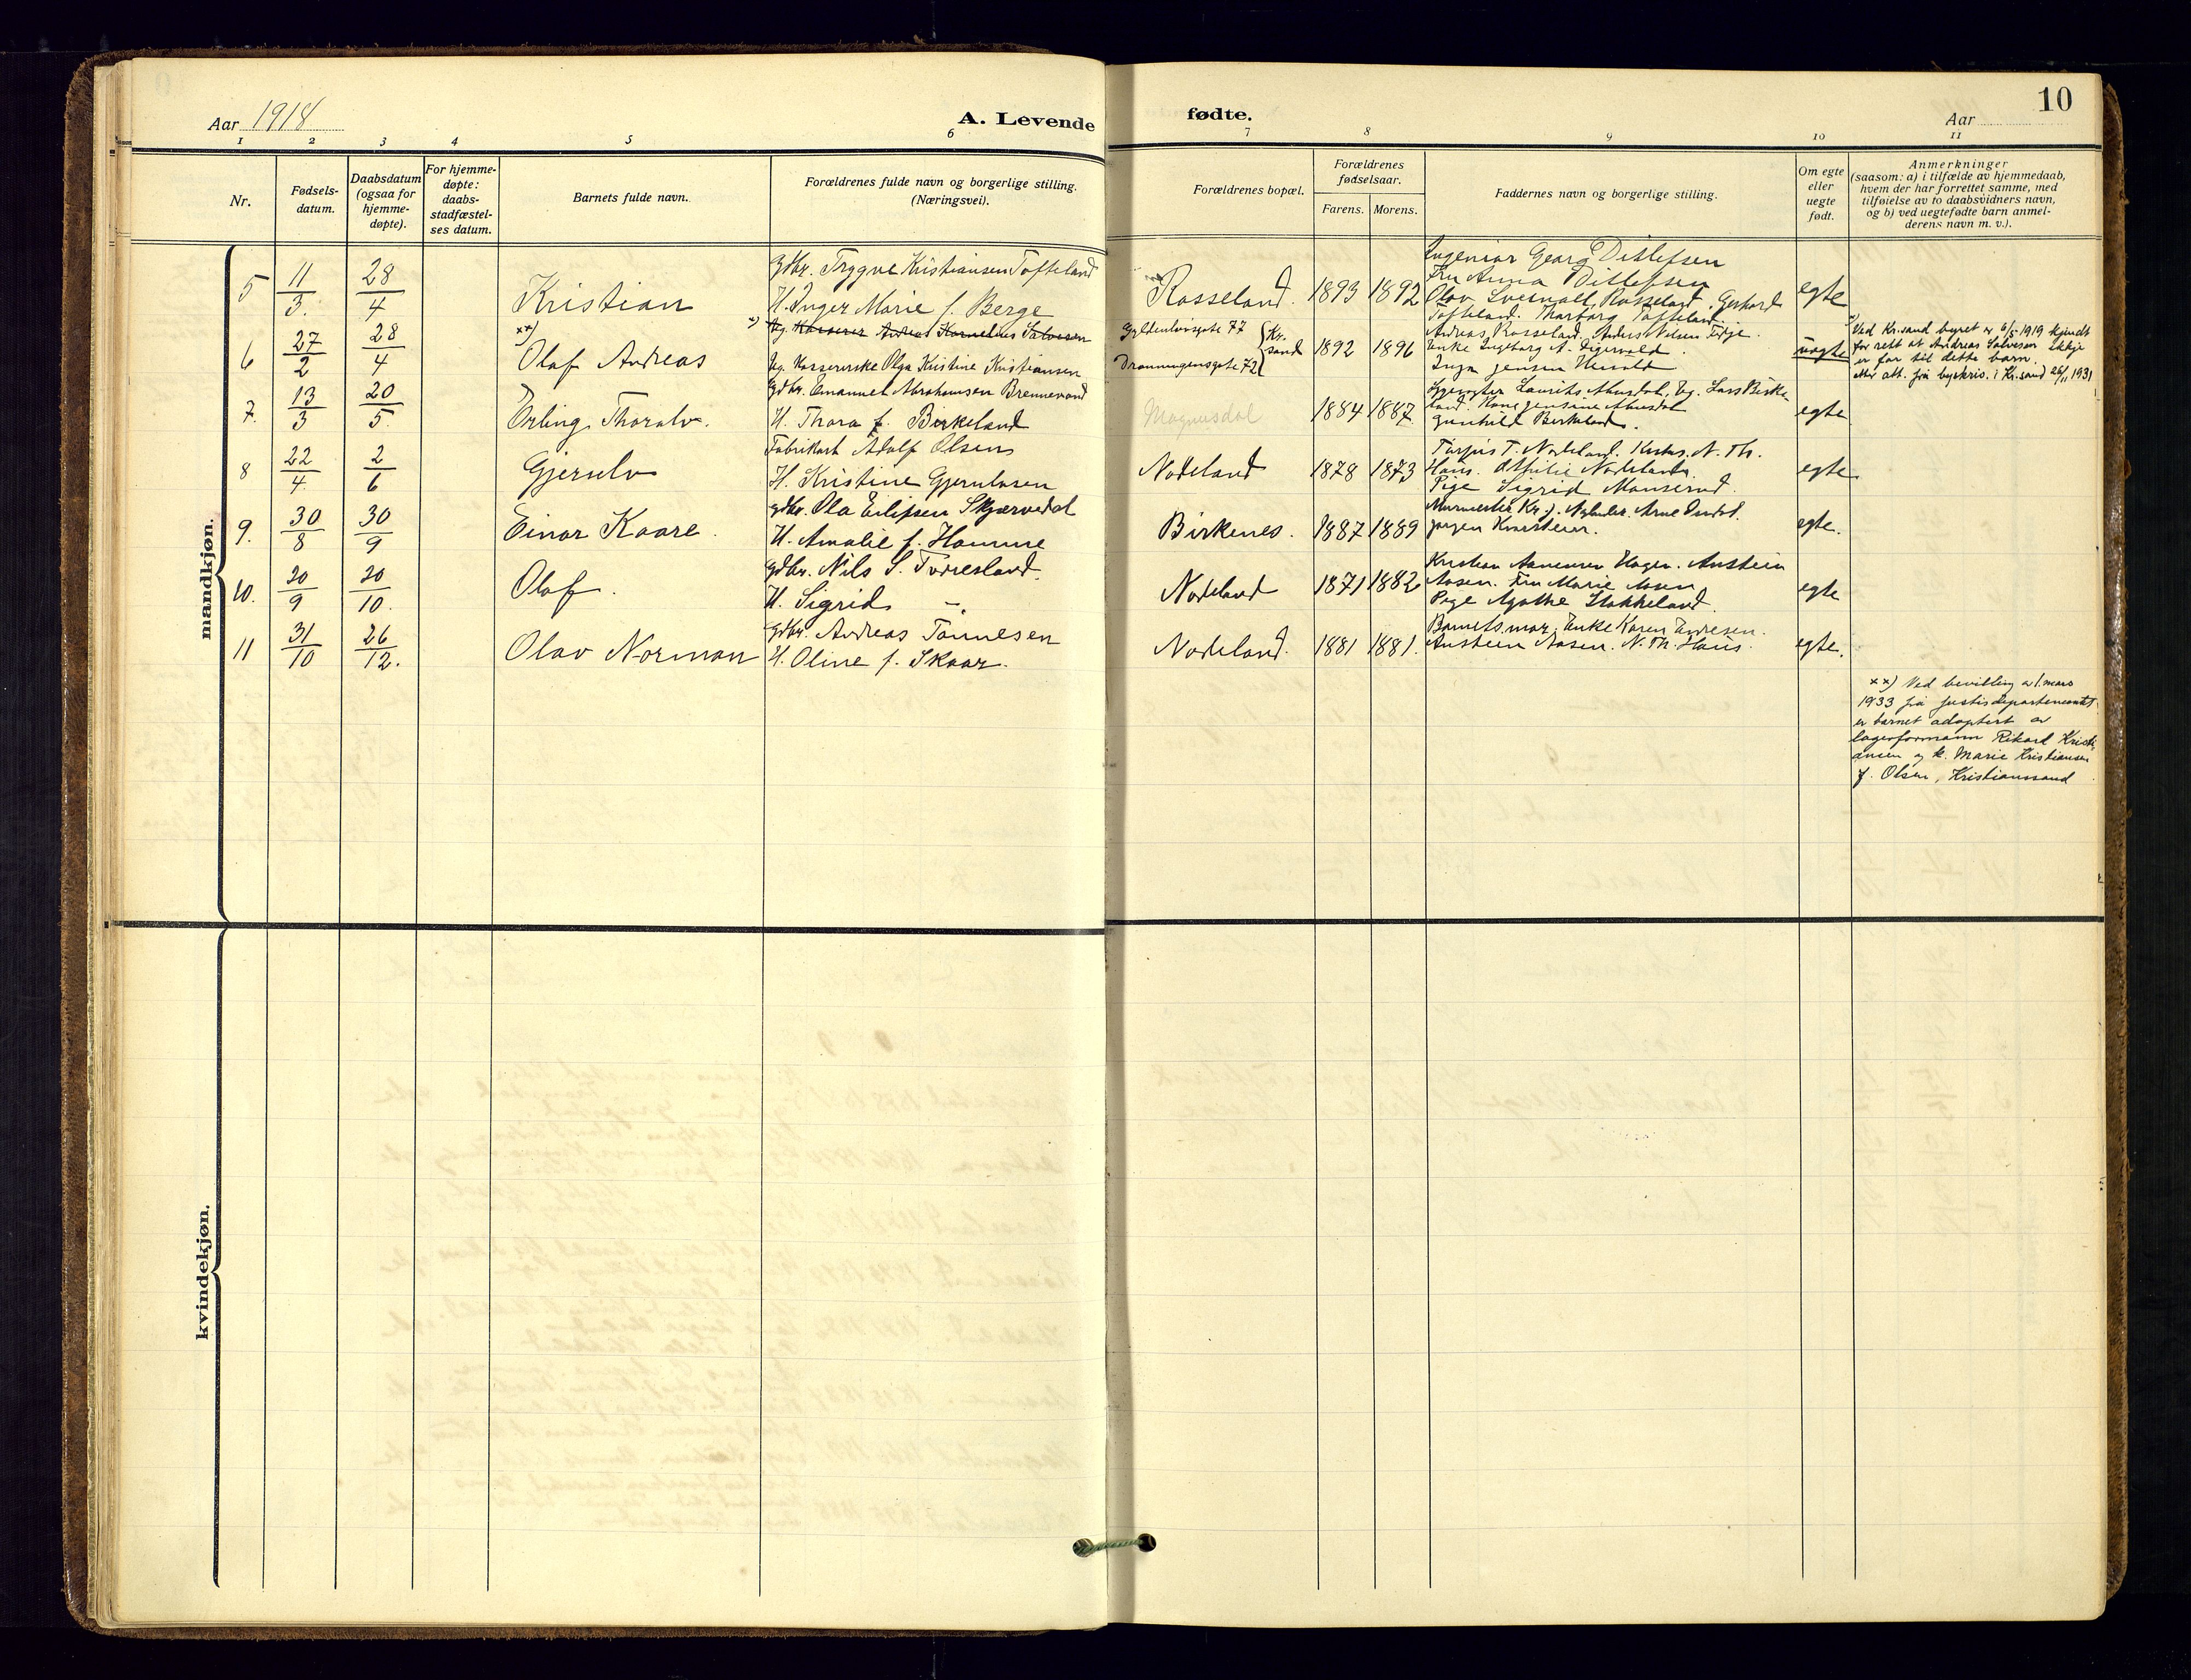 Aar 1918
A. Levende
fødte.
10
Aar
1 2 3 4 5 6 7 8 9 10 11
Nr.
Fødsels-
datum.
Daabsdatum
(ogsaa for
hjemme-
døpte).
For hjemme-
døpte:
daabs-
stadfæstel-
ses datum.
Barnets fulde navn.
Forældrenes fulde navn og borgerlige stilling.
(Næringsvei).
Forældrenes bopæl.
Forældrenes
fødselsaar.
Farens. Morens.
Faddernes navn og borgerlige stilling.
Om egte
eller
uegte
født.
Anmerkninger
(saasom: a) i tilfælde av hjemmedaab,
hvem der har forrettet samme, med
tilføielse av to daabsvidners navn,
og b) ved uegtefødte barn anmel-
derens navn m. v.).
mandkjøn.
5 11/3. 28/4 Kristian
Gdbr. Trygve Kristiansen Tofteland
H. Inger Marie f. Berge
Rosseland. 1893 1892
Ingeniør Georg Ditlefsen
Fru Anna Ditlefsen
Olav Rosseland. Gerhard
Tofteland. Tharborg Tofteland.
egte
6 27/2 28/4 xx) Olaf Andreas
x) Ug. Kasserer Andreas Kornelius Salvesen
Ug. Kassererske Olga Kristine Kristiansen
Gyldenløvsgate 77
Dronningensgate 72
Kr.
sand
1892 1896
Andreas Rosseland. Anders Nilsen
Enke Ingeborg A.
Inga Jensen
uegte
x) Ved Kr.sand byret er 6/5-1919 kjendt
for rett at Andreas Salvesen ikkje
er far til dette barn.
Mer att. frå byskriv. i Kr.sand 26/11 1931
7. 13/3 20/5 Erling Thoralv.
Gdbr. Emanuel Abrahamsen Brennevand
H. Thora f. Birkeland
Magnusdal 1884 1887
Laurits Ug. Lars Birke-
land. Kone Jensine
Gunhild Birkeland.
egte
8 22/4 2/6 Gjerulv
Fabrikarb Adolf Olsen
H. Kristine Gjerulvsen
Nodeland 1878 1873
Torjus T. Nodeland. N. Th.
Nodeland.
Pige Sigrid
egte
9. 30/8 30/9 Einar Kaare.
gdbr. Ola Eilifsen Skjævedal
H. Amalie f. Homme
Birkenes. 1887 1889
Murmester Kr. J. Arne
Jørgen
egte.
10. 20/9 20/10. Olaf.
gdbr. Nils S. Tvresland.
H. Sigrid —
Nodeland 1871 1882
Kristian Hagen. Anstein
Aasen. Fru Marie Aasen
Pige Agathe Stokkeland.
egte
11 31/10 26/12. Olav Norman
gdbr. Andreas Tønnesen
H. Oline f. Skaar.
Nodeland. 1881 1881.
Barnets mor. Enke Karen Endresen.
Anstein Aasen. N. Th.
egte.
xx) Ved bevilling av 1. mars
1933 frå justisdepartementet
er barnet adoptert av
lagerformann Rikard Kristi-
ansen og k. Marie Kristiansen
f. Olsen, Kristianssand
kvindekjøn.